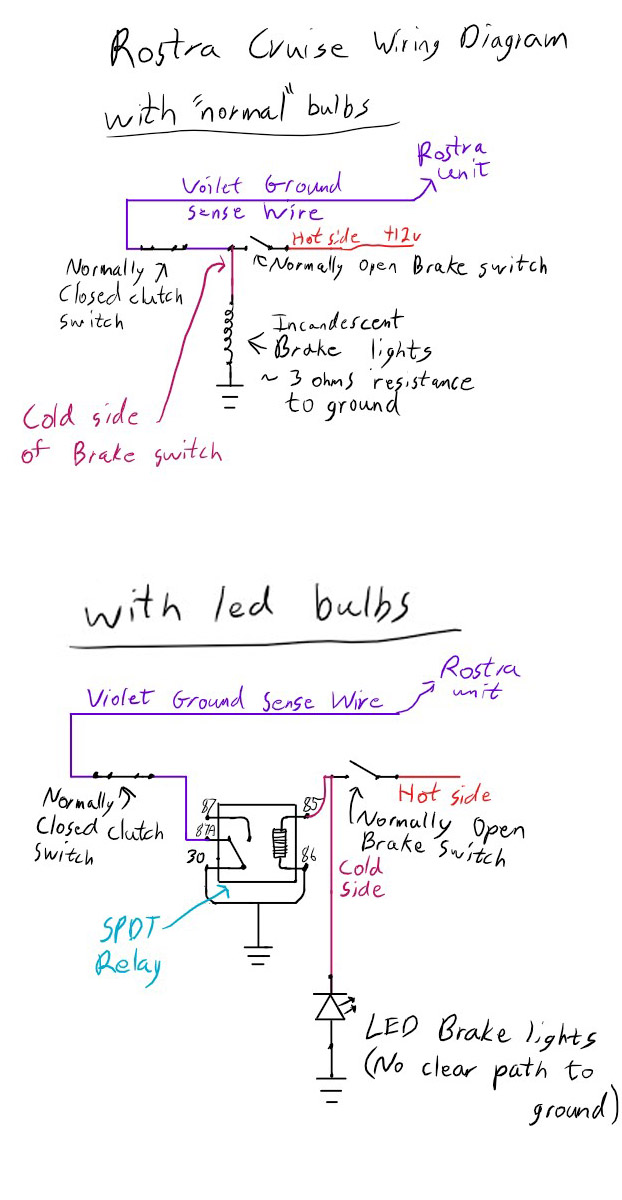 Rostra Cruise Wiring Diagram
with "normal" bulbs
Rostra
unit
Voilet Ground
Sense Wire
Hot side +12v
Normally Open Brake switch
Normally
Closed clutch
Switch
Incandescent
Brake lights
~ 3 ohms resistance
to ground
Cold side
of Brake switch
with led bulbs
Rostra
unit
Violet Ground Sense Wire
Hot side
Normally
Closed Clutch
Switch
87
87A
30
85
86
Normally Open
Brake Switch
Cold
side
SPDT
Relay
LED Brake lights
(No clear path to
ground)